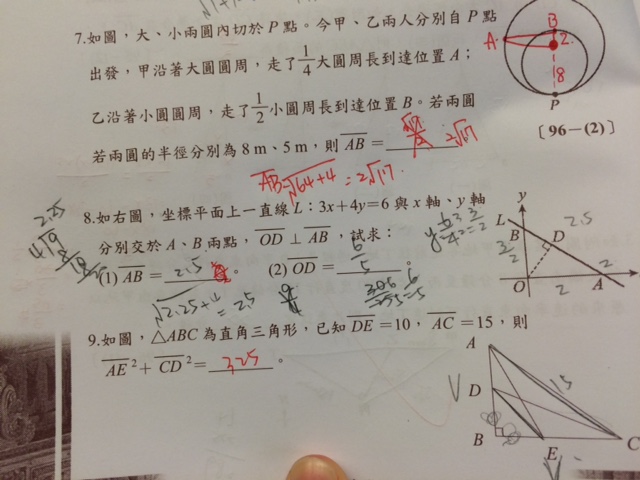 7.如圖，大、小兩圓內切於 P 點。今甲、乙兩人分別自 P 點
出發，甲沿著大圓圓周，走了 1/4 大圓周長到達位置 A；
乙沿著小圓圓周，走了 1/2 小圓周長到達位置 B。若兩圓
若兩圓的半徑分別為 8 m、5 m，則 AB = 2√17
AB=√64+4 = 2√17
B
A
2
8
P
〔96－(2)〕
8.如右圖，坐標平面上一直線 L：3x+4y=6 與 x 軸、y 軸
分別交於 A、B 兩點，OD ⊥ AB，試求：
(1) AB = 2.5 。 (2) OD = 6/5 。
√2.25+4 = 2.5
2.25
y
L
B
D
2.5
3/2
2
O
2
A
x
9.如圖，△ABC 為直角三角形，已知 DE =10，AC =15，則
AE ² + CD ² = 325 。
A
D
15
B
E
C